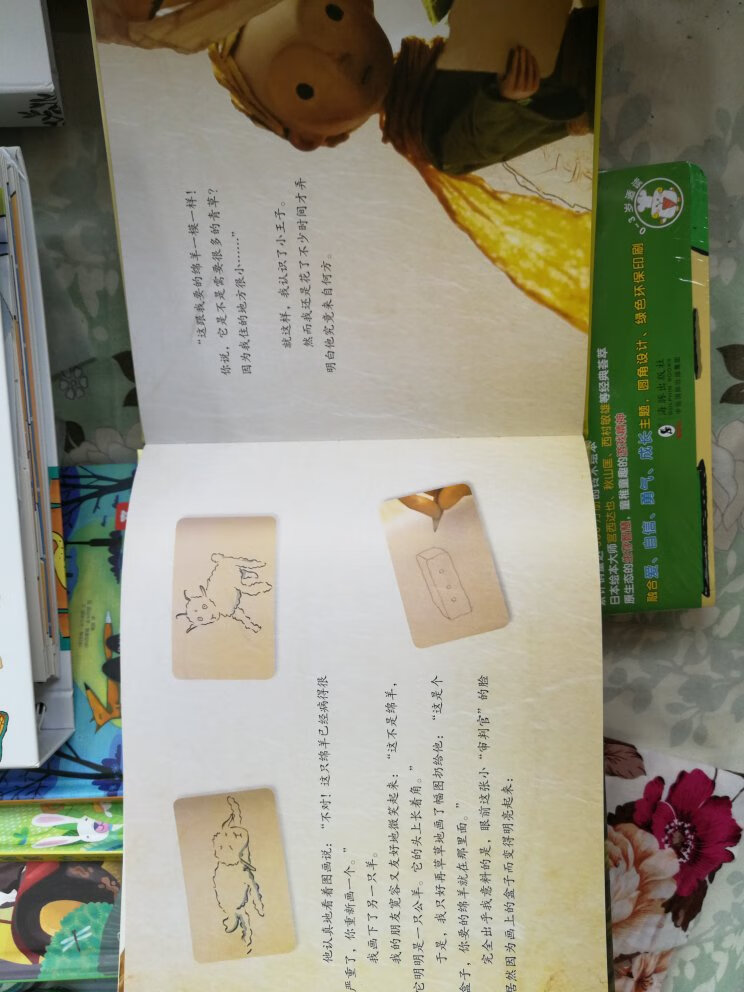 他认真地看着图画说：“不对！这只绵羊已经病得很
严重了，你重新画一个。”
我画下了另一只羊。
我的朋友宽容又友好地微笑起来：“这不是绵羊，
它明明是一只公羊。它的头上长着角。”
于是，我只好再草草地画了幅图扔给他：“这是个
盒子，你要的绵羊就在那里面。”
完全出乎我意料的是，眼前这张小“审判官”的脸
居然因为画上的盒子而变得明亮起来：
“这跟我要的绵羊一模一样！
你说，它是不是需要很多的青草？
因为我住的地方很小……”
就这样，我认识了小王子。
然而我还是花了不少时间才弄
明白他究竟来自何方。
0-3岁
日本绘本大师宫西达也、秋山匡、西村敏雄等经典荟萃
原生态的 童稚童趣的
融合爱、自信、勇气、成长主题，圆角设计、绿色环保印刷
海豚出版社
DOLPHIN BOOKS
中国国际出版集团